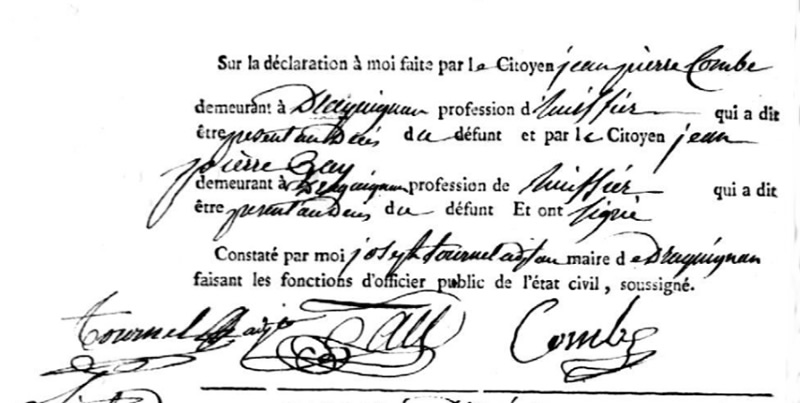 Sur la déclaration à moi faite par le Citoyen jean pierre Combe
demeurant à Draguignan profession d huissier qui a dit
être present au deces du défunt et par le Citoyen jean
pierre
demeurant à Draguignan profession de huissier qui a dit
être present au deces du défunt Et ont signé
Constaté par moi joseph tournel adj au maire de Draguignan
faisant les fonctions d'officier public de l'état civil, soussigné.
tournel Combe